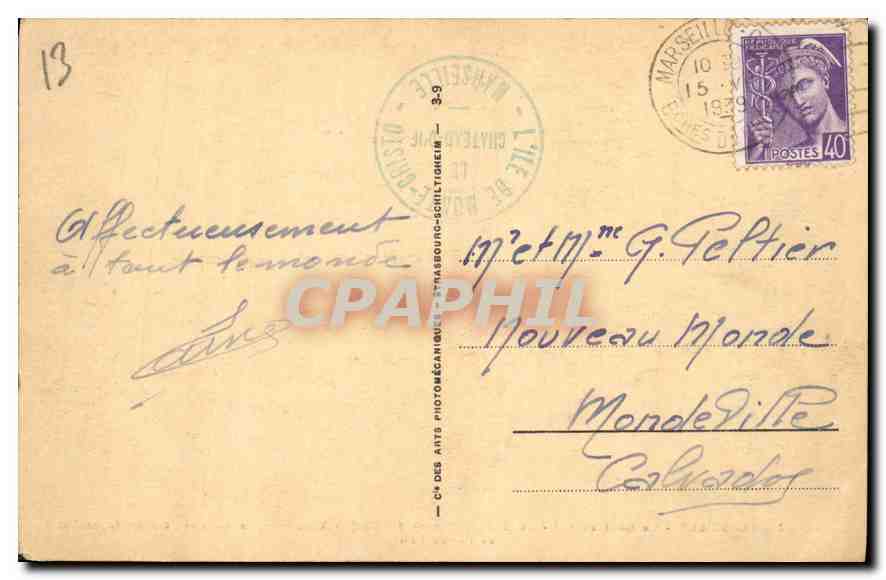 13
L'ÎLE DE MONTE-CRISTO
ET
CHATEAU D'IF
— MARSEILLE —
MARSEILLE
10
15
1939
BCHES DU
REPUBLIQUE
FRANCAISE
POSTES 40c
Affectueusement
à tout le monde
CPAPHIL
— Cie DES ARTS PHOTOMÉCANIQUES - STRASBOURG-SCHILTIGHEIM — 3-9
Mr et Mme G. Peltier
Nouveau Monde
Mondeville
Calvados